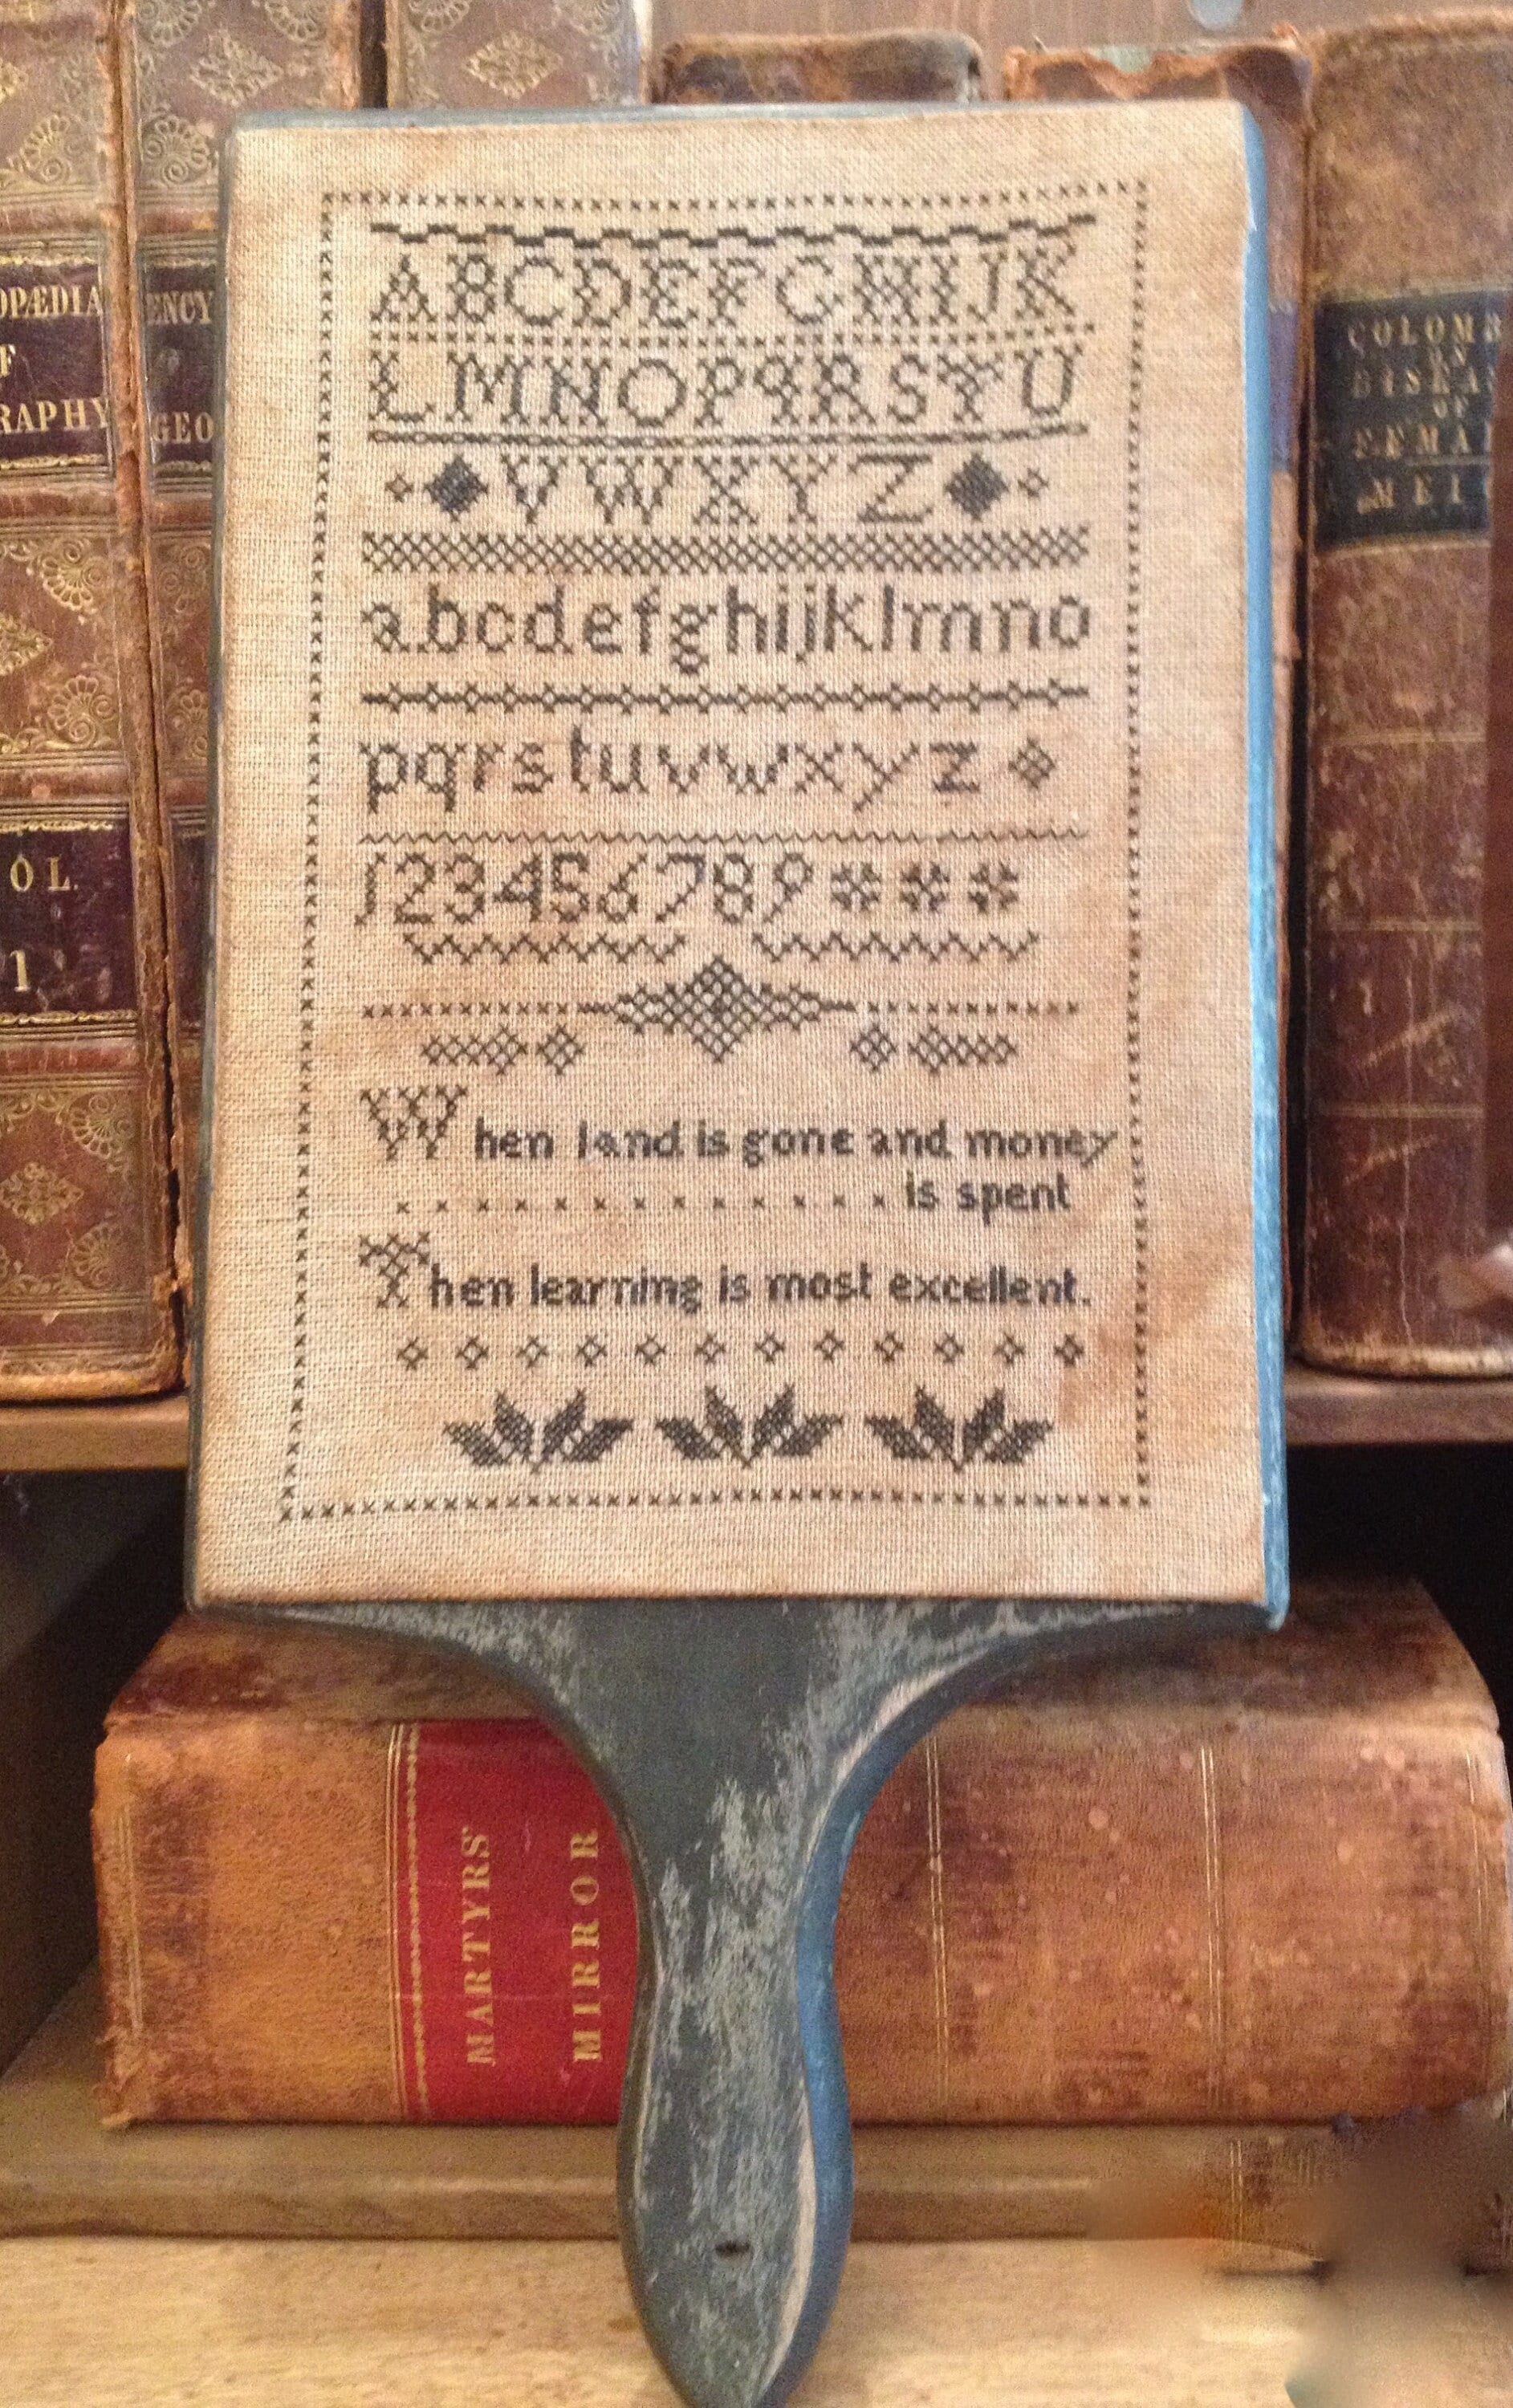 ABCDEFGHIJK
LMNOPQRSTU
VWXYZ
abcdefghijklmno
pqrstuvwxyz
123456789
When land is gone and money
is spent
Then learning is most excellent.
OPÆDIA
F
RAPHY
OL
1
ENCY
GEO
COLOMB
ON
DISEA
OF
FEMA
MEI
MARTYRS'
MIRROR